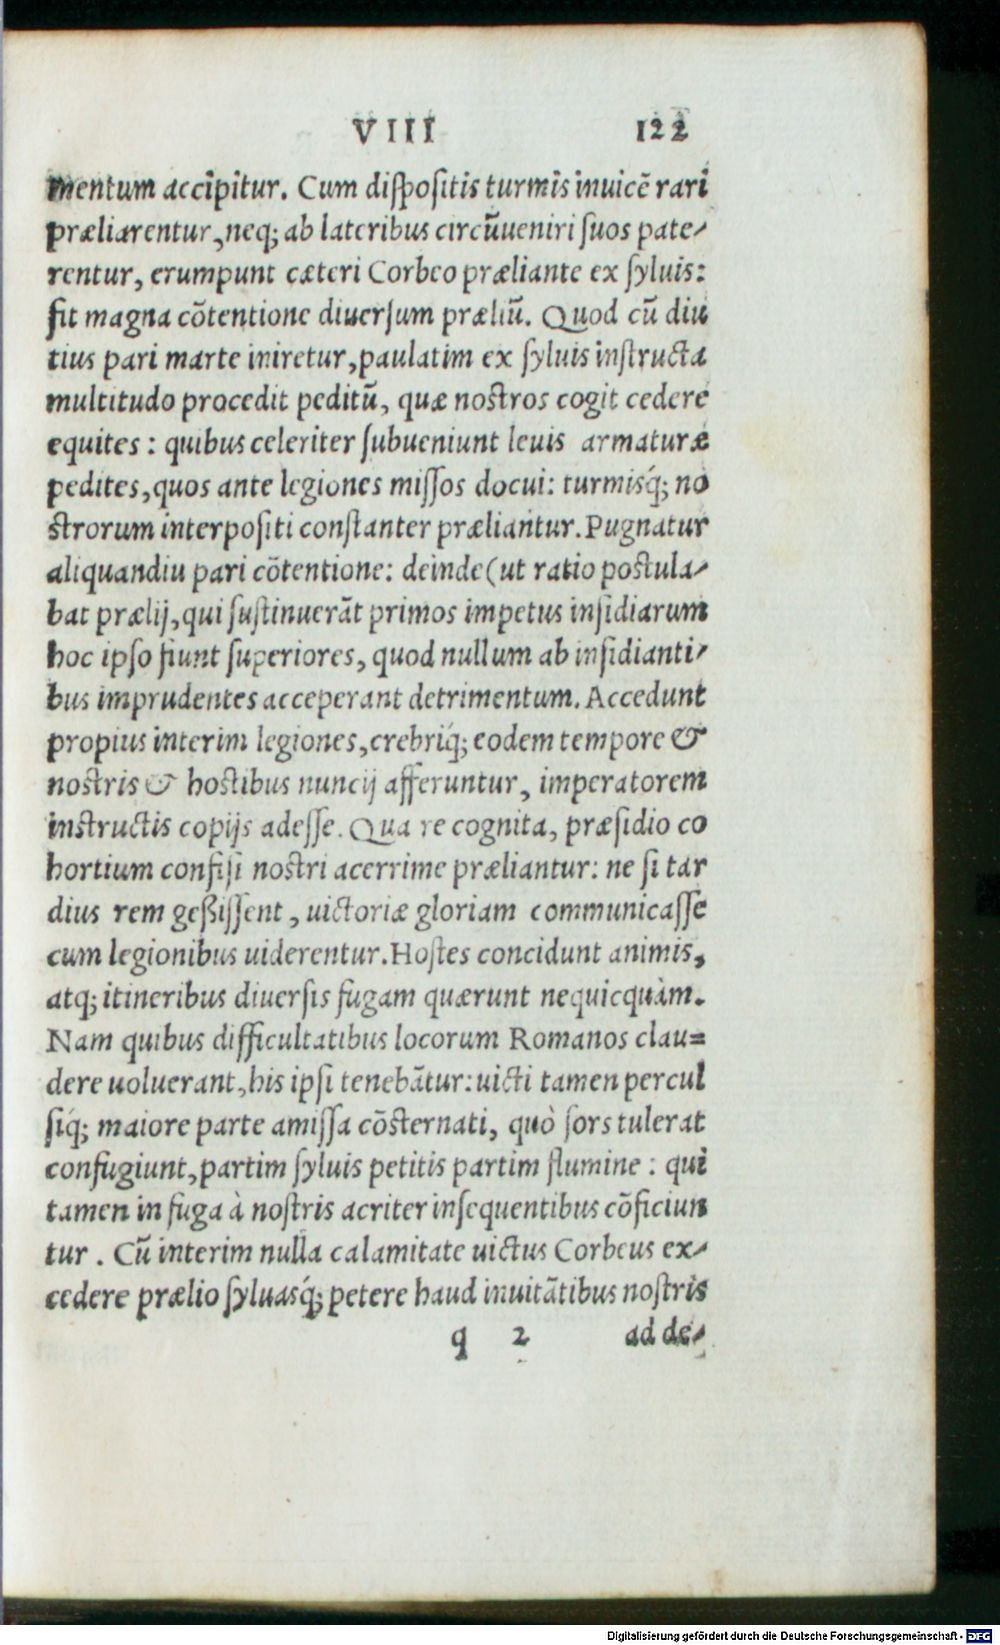 VIII 122
mentum accipitur. Cum dispositis turmis inuicẽ rari
præliarentur, neq; ab lateribus circũueniri suos pate-
rentur, erumpunt cæteri Corbeo præliante ex syluis:
fit magna cõtentione diuersum præliũ. Quod cũ diu
tius pari marte iniretur, paulatim ex syluis instructa
multitudo procedit peditũ, quæ nostros cogit cedere
equites: quibus celeriter subueniunt leuis armaturæ
pedites, quos ante legiones missos docui: turmisq́; no
strorum interpositi constanter præliantur. Pugnatur
aliquandiu pari cõtentione: deinde (ut ratio postula-
bat prælij, qui sustinuerãt primos impetus insidiarum
hoc ipso fiunt superiores, quod nullum ab insidianti-
bus imprudentes acceperant detrimentum. Accedunt
propius interim legiones, crebriq́; eodem tempore &
nostris & hostibus nuncij afferuntur, imperatorem
instructis copijs adesse. Qua re cognita, præsidio co
hortium confisi nostri acerrime præliantur: ne si tar
dius rem geßissent, uictoriæ gloriam communicasse
cum legionibus uiderentur. Hostes concidunt animis,
atq; itineribus diuersis fugam quærunt nequicquàm.
Nam quibus difficultatibus locorum Romanos clau=
dere uoluerant, his ipsi tenebãtur: uicti tamen percul
siq́; maiore parte amissa cõsternati, quò sors tulerat
confugiunt, partim syluis petitis partim flumine: qui
tamen in fuga à nostris acriter insequentibus cõficiun
tur. Cũ interim nulla calamitate uictus Corbeus ex-
cedere prælio syluasq́; petere haud inuitãtibus nostris
q 2 ad de-
Digitalisierung gefördert durch die Deutsche Forschungsgemeinschaft - DFG